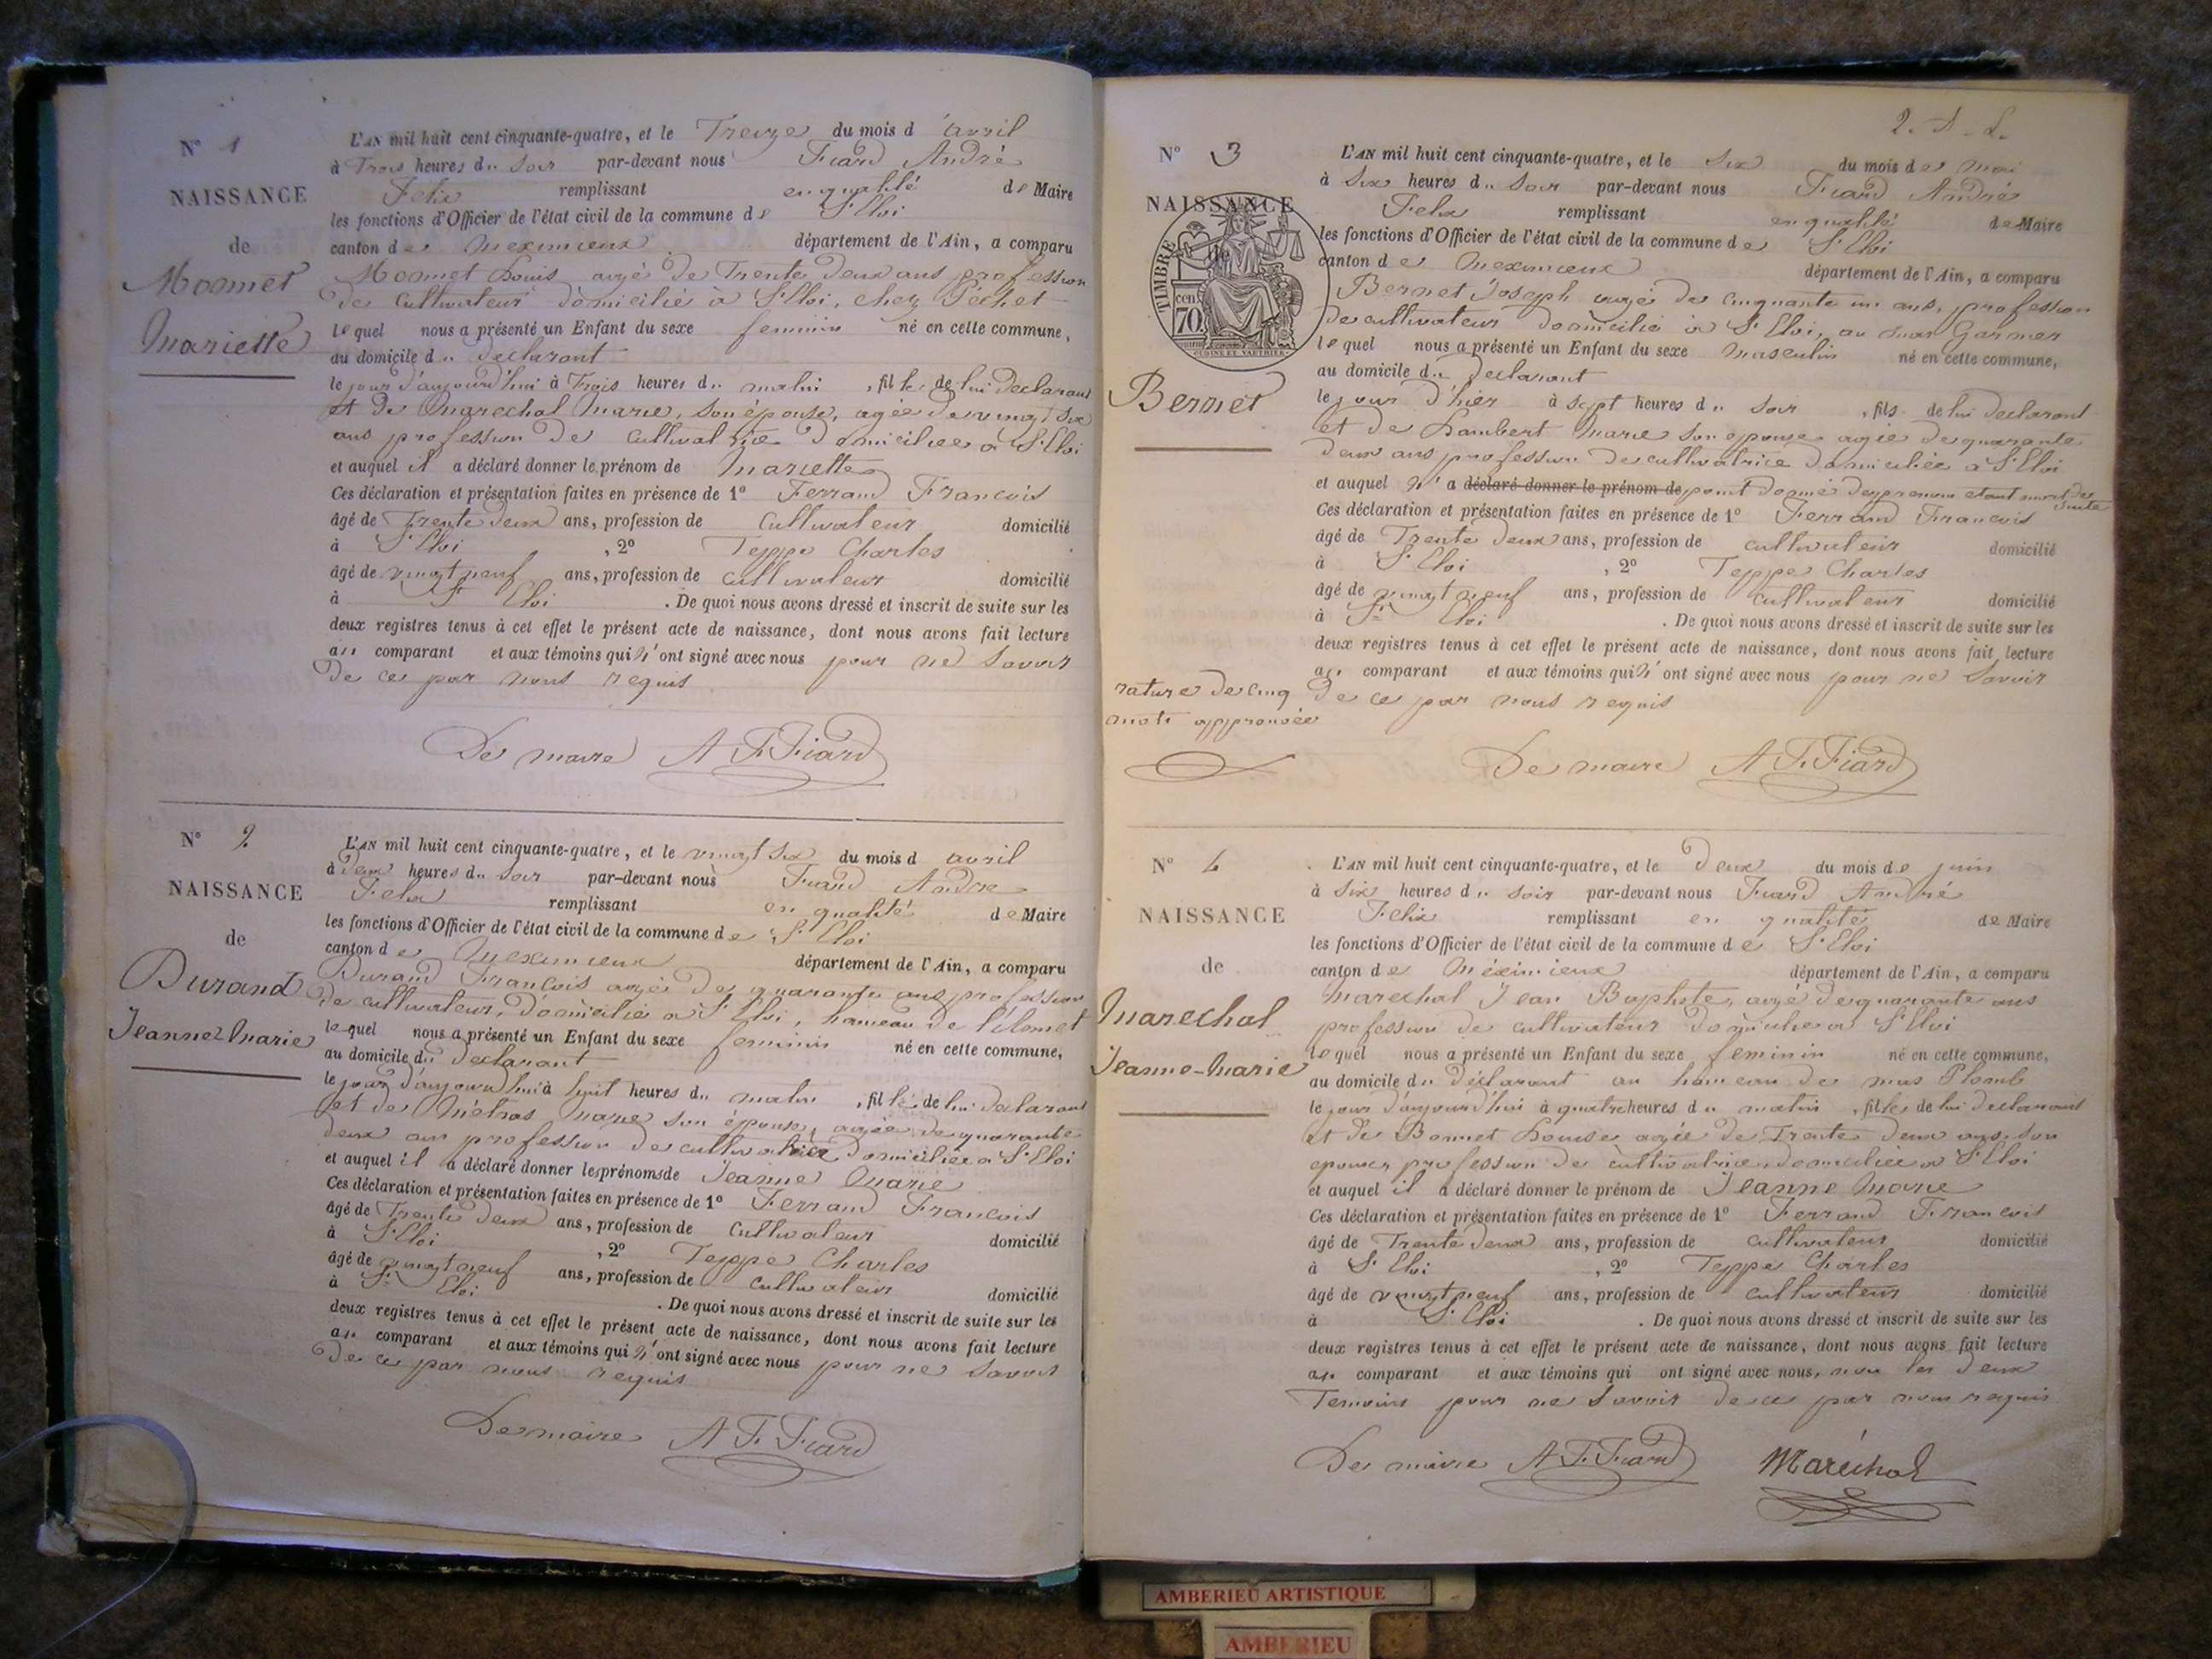 N° 1
NAISSANCE
de
Monnet
Mariette
L'AN mil huit cent cinquante-quatre, et le Treize du mois d avril
à Trois heures du soir par-devant nous Fiard André
Felix remplissant en qualité de Maire
les fonctions d'Officier de l'état civil de la commune de St Eloi
canton de Meximieux département de l'Ain, a comparu
Monnet Louis agé de Trente deux ans profession
de cultivateur domicilié à St Eloi, chez Péchet
lequel nous a présenté un Enfant du sexe feminin né en cette commune,
au domicile du declarant
le jour d'aujourd'hui à Trois heures du matin , fille de lui declarant
et de Marechal Marie, son épouse, agée de vingt six
ans profession de cultivatrice domiciliée à St Eloi
et auquel il a déclaré donner le prénom de Mariette
Ces déclaration et présentation faites en présence de 1° Ferrand François
âgé de Trente deux ans, profession de cultivateur domicilié
à St Eloi , 2° Teppe Charles
âgé de vingt neuf ans, profession de cultivateur domicilié
à St Eloi . De quoi nous avons dressé et inscrit de suite sur les
deux registres tenus à cet effet le présent acte de naissance, dont nous avons fait lecture
au comparant et aux témoins qui n'ont signé avec nous pour ne savoir
de ce par nous requis
Le maire A F Fiard
N° 2
NAISSANCE
de
Durand
Jeanne Marie
L'AN mil huit cent cinquante-quatre, et le vingt six du mois d avril
à deux heures du soir par-devant nous Fiard André
Felix remplissant en qualité de Maire
les fonctions d'Officier de l'état civil de la commune de St Eloi
canton de Meximieux département de l'Ain, a comparu
Durand François agé de quarante ans profession
de cultivateur, domicilié à St Eloi, hameau de
lequel nous a présenté un Enfant du sexe feminin né en cette commune,
au domicile du declarant
le jour d'aujourd'hui à huit heures du matin , fille de lui declarant
et de Métras Marie son épouse, agée de quarante
deux ans profession de cultivatrice domiciliée à St Eloi
et auquel il a déclaré donner les prénoms de Jeanne Marie
Ces déclaration et présentation faites en présence de 1° Ferrand François
âgé de Trente deux ans, profession de cultivateur domicilié
à St Eloi , 2° Teppe Charles
âgé de vingt neuf ans, profession de cultivateur domicilié
à St Eloi . De quoi nous avons dressé et inscrit de suite sur les
deux registres tenus à cet effet le présent acte de naissance, dont nous avons fait lecture
au comparant et aux témoins qui n'ont signé avec nous pour ne savoir
de ce par nous requis
Le maire A F Fiard
N° 3
NAISSANCE
de
TIMBRE
cen
70
Bernet
L'AN mil huit cent cinquante-quatre, et le six du mois de mai
à six heures du soir par-devant nous Fiard André
Felix remplissant en qualité de Maire
les fonctions d'Officier de l'état civil de la commune de St Eloi
canton de Meximieux département de l'Ain, a comparu
Bernet Joseph agé de cinquante un ans, profession
de cultivateur domicilié à St Eloi, au mas Garnier
lequel nous a présenté un Enfant du sexe masculin né en cette commune,
au domicile du declarant
le jour d'hier à sept heures du soir , fils de lui declarant
et de Lambert Marie son epouse agée de quarante
deux ans profession de cultivatrice domiciliée à St Eloi
et auquel n'a déclaré donner le prénom de point donné de prenom etant mort de suite
Ces déclaration et présentation faites en présence de 1° Ferrand François
âgé de Trente deux ans, profession de cultivateur domicilié
à St Eloi , 2° Teppe Charles
âgé de vingt neuf ans, profession de cultivateur domicilié
à St Eloi . De quoi nous avons dressé et inscrit de suite sur les
deux registres tenus à cet effet le présent acte de naissance, dont nous avons fait lecture
au comparant et aux témoins qui n'ont signé avec nous pour ne savoir
de ce par nous requis
rature de cinq
mots approuvée
Le maire A F Fiard
N° 4
NAISSANCE
de
Marechal
Jeanne-Marie
L'AN mil huit cent cinquante-quatre, et le deux du mois de juin
à six heures du soir par-devant nous Fiard André
Felix remplissant en qualité de Maire
les fonctions d'Officier de l'état civil de la commune de St Eloi
canton de Méximieux département de l'Ain, a comparu
Marechal Jean Baptiste, agé de quarante ans
profession de cultivateur domicilié à St Eloi
lequel nous a présenté un Enfant du sexe feminin né en cette commune,
au domicile du déclarant au hameau de mas Plomb
le jour d'aujourd'hui à quatre heures du matin , fille de lui declarant
et de Bonnet Louise agée de Trente deux ans, son
epouse, profession de cultivatrice, domiciliée à St Eloi
et auquel il a déclaré donner le prénom de Jeanne Marie
Ces déclaration et présentation faites en présence de 1° Ferrand François
âgé de Trente deux ans, profession de cultivateur domicilié
à St Eloi , 2° Teppe Charles
âgé de vingt neuf ans, profession de cultivateur domicilié
à St Eloi . De quoi nous avons dressé et inscrit de suite sur les
deux registres tenus à cet effet le présent acte de naissance, dont nous avons fait lecture
au comparant et aux témoins qui ont signé avec nous, non les deux
Temoins pour ne savoir de ce par nous requis
Le maire A F Fiard Maréchal
AMBERIEU ARTISTIQUE
AMBERIEU